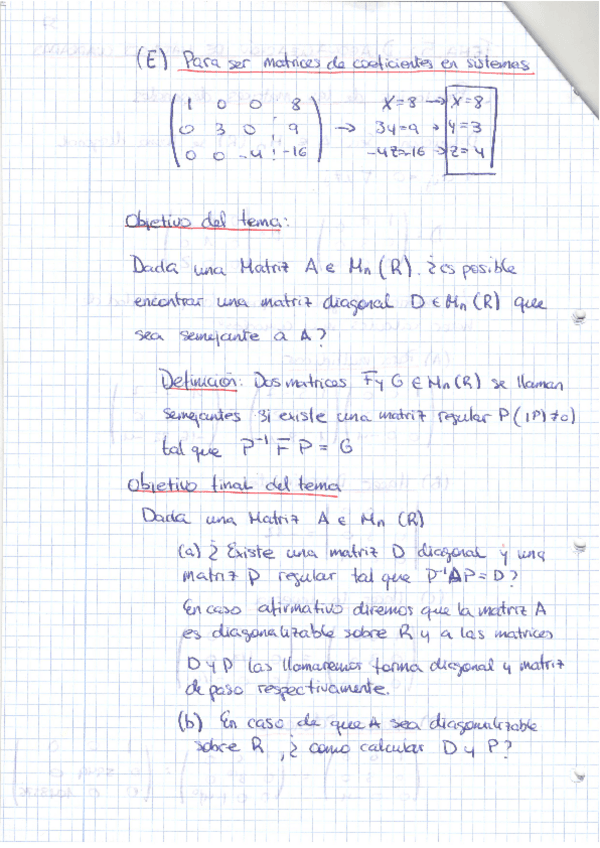 (E) Para ser matrices de coeficientes en sistemas
1 0 0 8 X=8 → X=8
0 3 0 9 → 3y=9 → y=3
0 0 -4 -16 -4z=-16 → z=4
Objetivo del tema:
Dada una Matriz A ∈ Mn (R). ¿es posible
encontrar una matriz diagonal D ∈ Mn (R) que
sea semejante a A?
Definición: Dos matrices F y G ∈ Mn (R) se llaman
semejantes si existe una matriz regular P (|P|≠0)
tal que P⁻¹ F P = G
Objetivo final del tema
Dada una Matriz A ∈ Mn (R)
(a) ¿Existe una matriz D diagonal y una
matriz P regular tal que P⁻¹AP=D?
En caso afirmativo diremos que la matriz A
es diagonalizable sobre R y a las matrices
D y P las llamaremos forma diagonal y matriz
de paso respectivamente.
(b) En caso de que A sea diagonalizable
sobre R, ¿como calcular D y P?